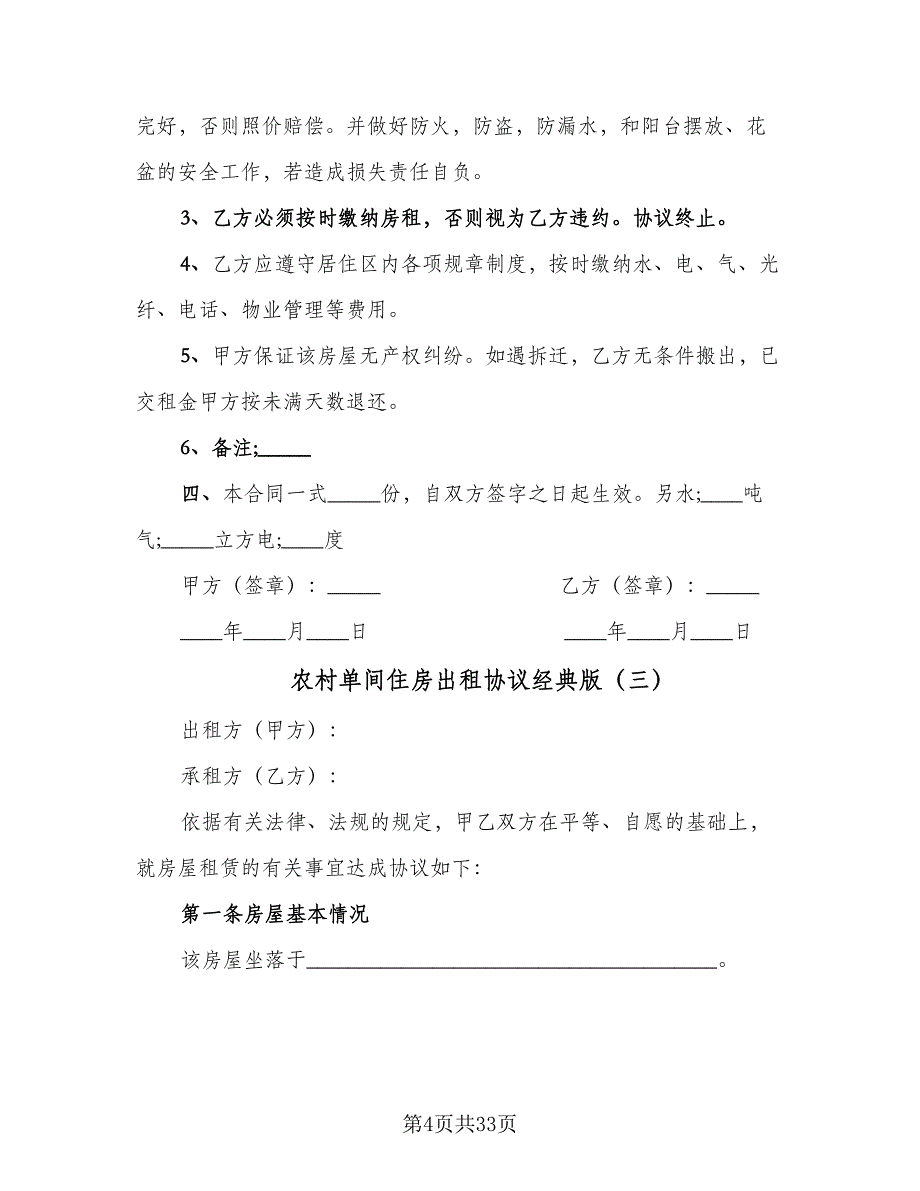 完好，否则照价赔偿。并做好防火，防盗，防漏水，和阳台摆放、花
盆的安全工作，若造成损失责任自负。
3、乙方必须按时缴纳房租，否则视为乙方违约。协议终止。
4、乙方应遵守居住区内各项规章制度，按时缴纳水、电、气、光
纤、电话、物业管理等费用。
5、甲方保证该房屋无产权纠纷。如遇拆迁，乙方无条件搬出，已
交租金甲方按未满天数退还。
6、备注;_____
四、本合同一式_____份，自双方签字之日起生效。另水;____吨
气;_____立方电;____度
甲方（签章）：_____ 乙方（签章）：_____
____年____月____日 ____年____月____日
农村单间住房出租协议经典版（三）
出租方（甲方）：
承租方（乙方）：
依据有关法律、法规的规定，甲乙双方在平等、自愿的基础上，
就房屋租赁的有关事宜达成协议如下：
第一条房屋基本情况
该房屋坐落于_______________________________________。
第4页共33页